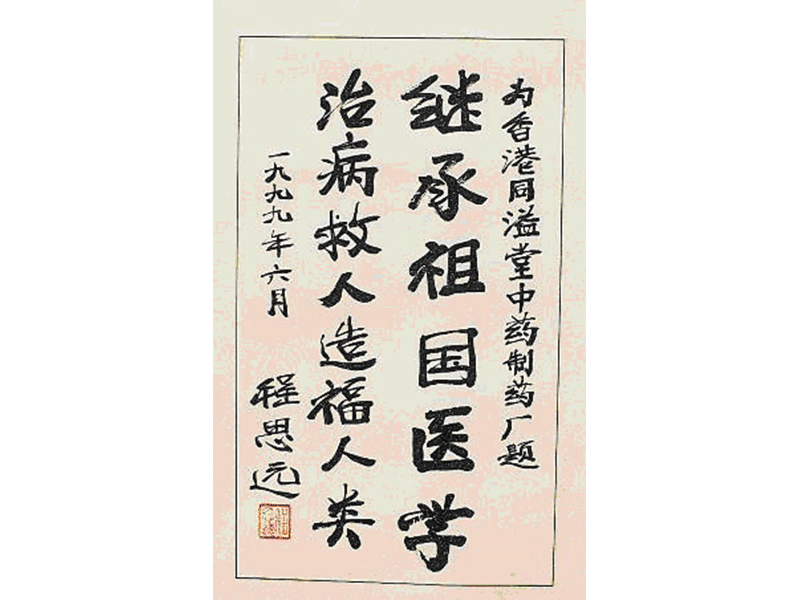 为香港同溢堂中药制药厂题
继承祖国医学
治病救人造福人类
一九九九年六月
程思远